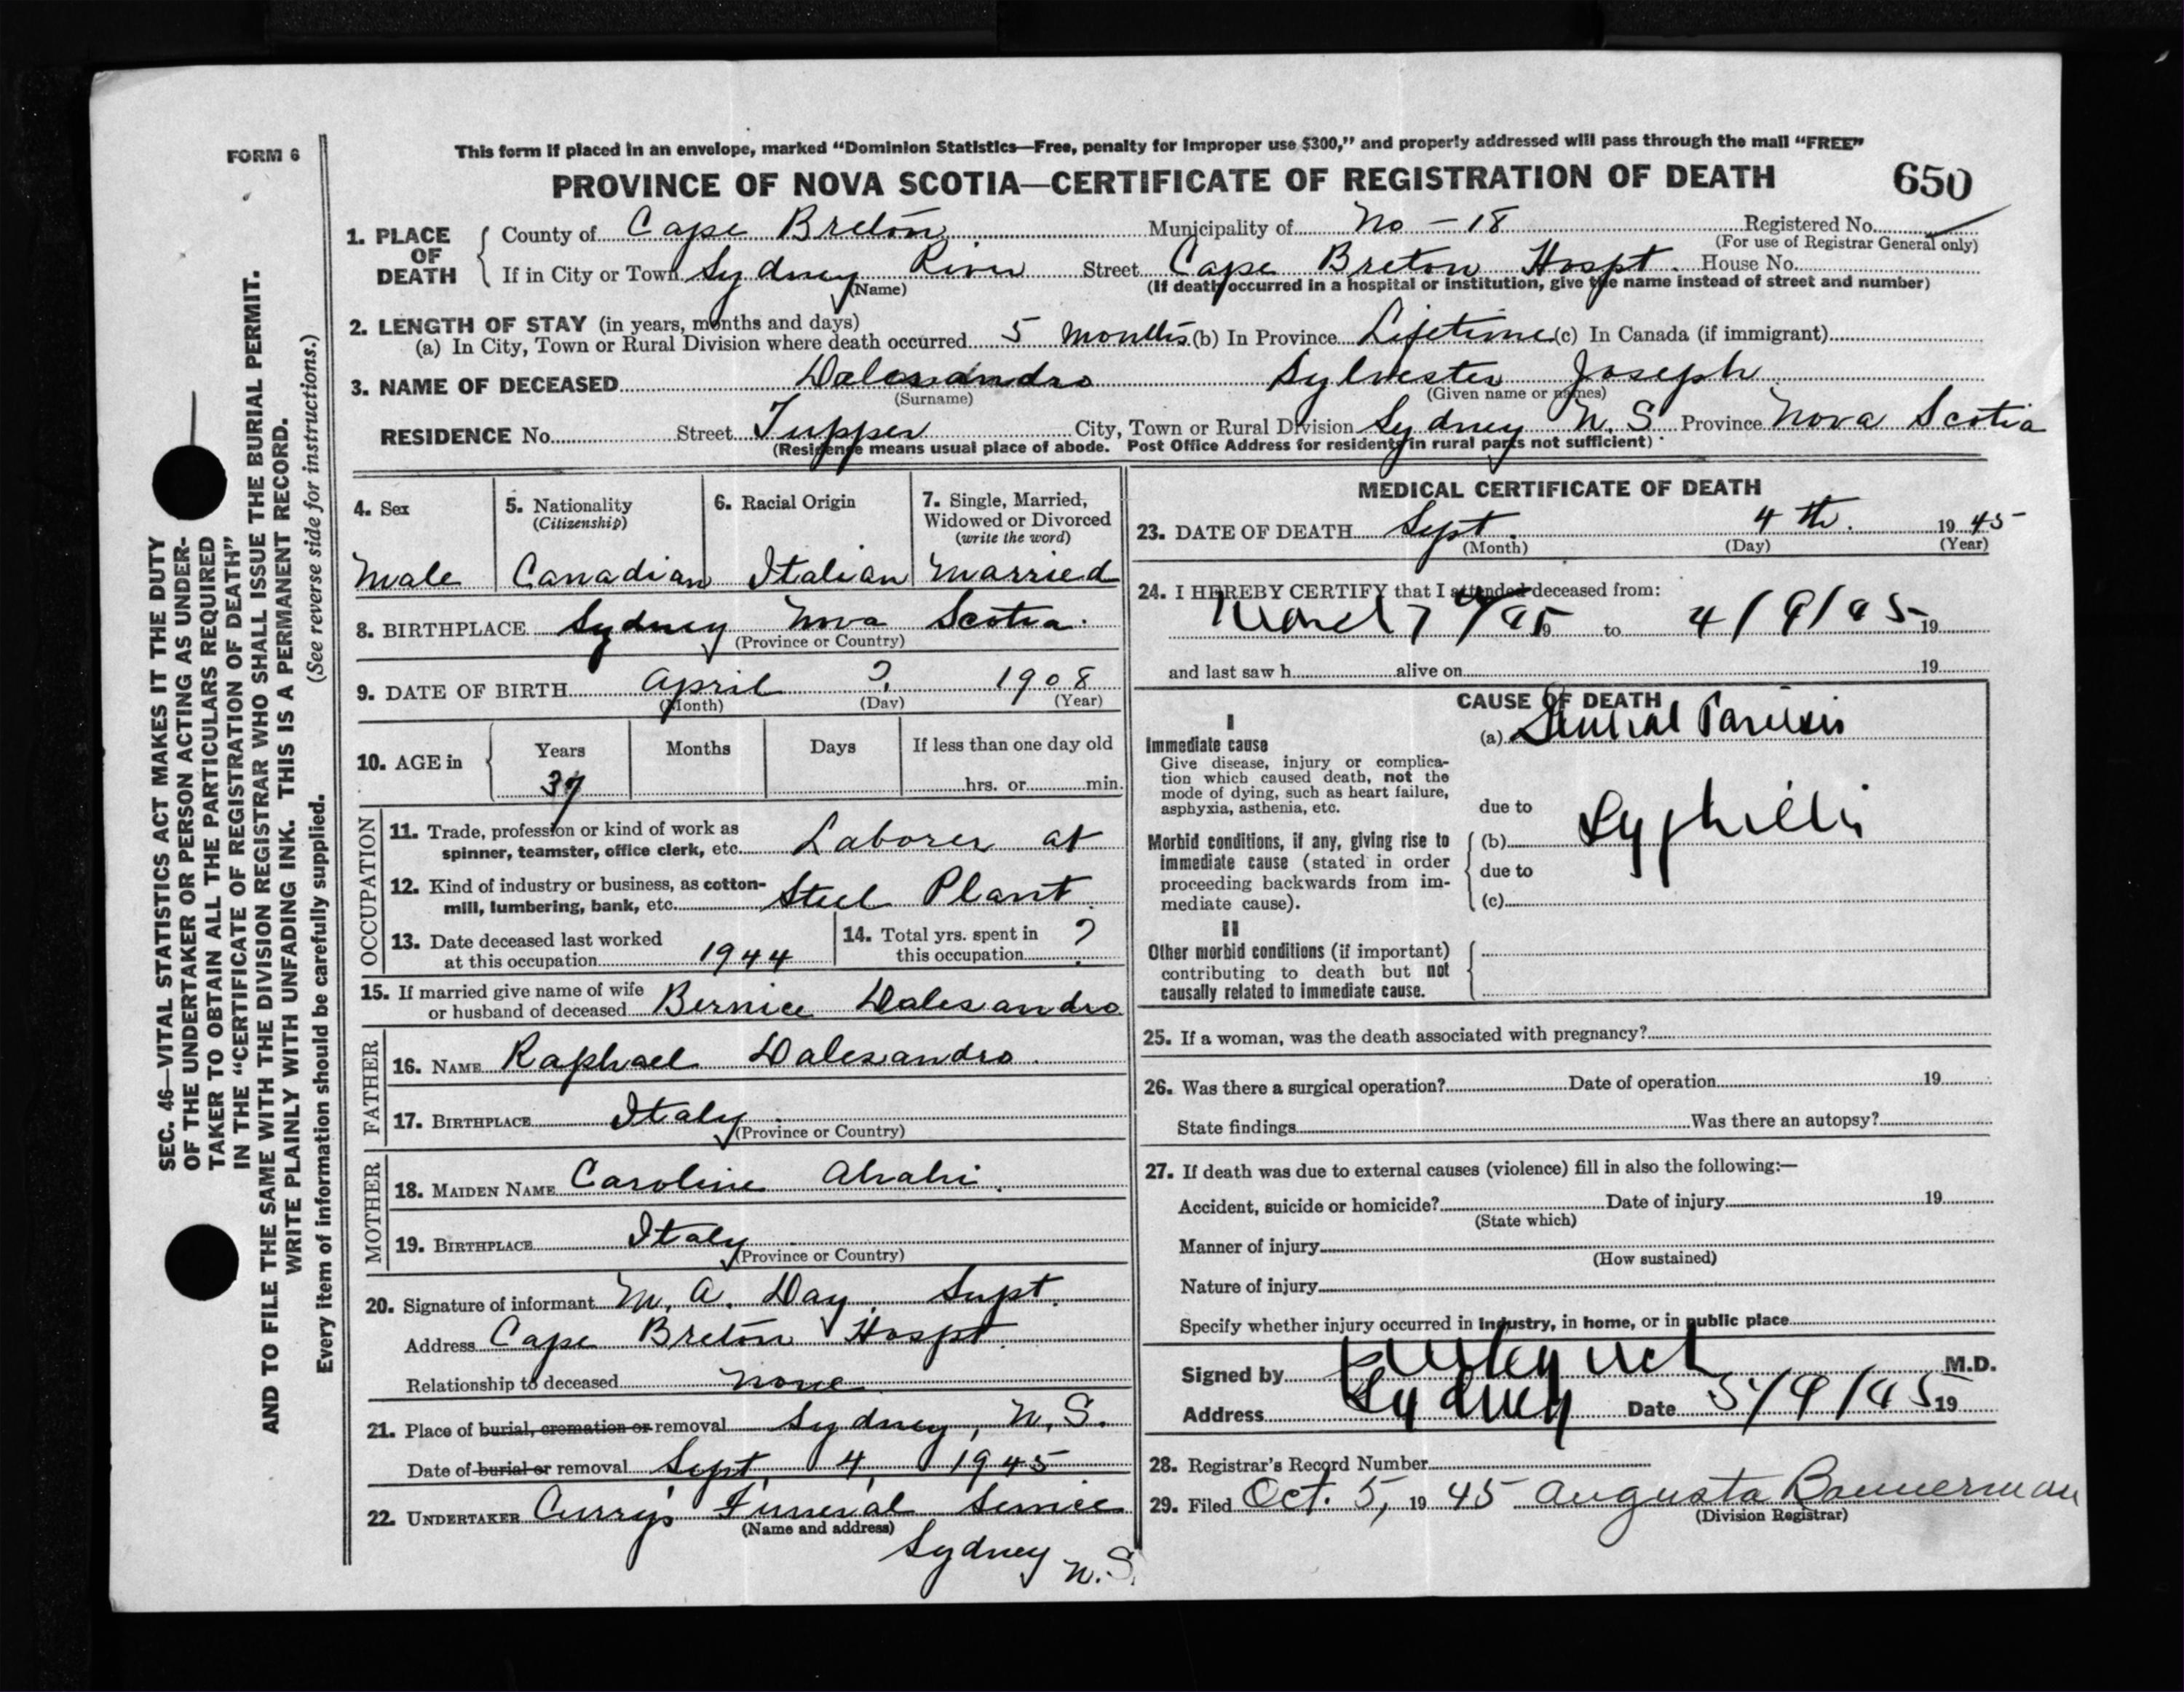 FORM 6
This form if placed in an envelope, marked “Dominion Statistics—Free, penalty for improper use $300,” and properly addressed will pass through the mail “FREE”
PROVINCE OF NOVA SCOTIA—CERTIFICATE OF REGISTRATION OF DEATH 650
1. PLACE OF DEATH
County of Cape Breton Municipality of No - 18 Registered No.
(For use of Registrar General only)
If in City or Town Sydney River Street Cape Breton Hospt. House No.
(Name) (If death occurred in a hospital or institution, give the name instead of street and number)
2. LENGTH OF STAY (in years, months and days)
(a) In City, Town or Rural Division where death occurred 5 months (b) In Province Lifetime (c) In Canada (if immigrant)
3. NAME OF DECEASED Dalesandro Sylvester Joseph
(Surname) (Given name or names)
RESIDENCE No. Street Tupper City, Town or Rural Division Sydney N.S. Province Nova Scotia
(Residence means usual place of abode. Post Office Address for residents in rural parts not sufficient)
4. Sex
Male
5. Nationality
(Citizenship)
Canadian
6. Racial Origin
Italian
7. Single, Married,
Widowed or Divorced
(write the word)
Married
8. BIRTHPLACE Sydney Nova Scotia.
(Province or Country)
9. DATE OF BIRTH April ?. 1908
(Month) (Day) (Year)
10. AGE in
Years Months Days If less than one day old
37 hrs. or min.
OCCUPATION
11. Trade, profession or kind of work as
spinner, teamster, office clerk, etc. Laborer at
12. Kind of industry or business, as cotton-
mill, lumbering, bank, etc. Steel Plant.
13. Date deceased last worked
at this occupation 1944
14. Total yrs. spent in
this occupation ?
15. If married give name of wife
or husband of deceased Bernice Dalesandro
FATHER
16. NAME Raphael Dalesandro.
17. BIRTHPLACE Italy.
(Province or Country)
MOTHER
18. MAIDEN NAME Caroline
19. BIRTHPLACE Italy
(Province or Country)
20. Signature of informant M. A. Day, Supt.
Address Cape Breton Hospt.
Relationship to deceased none
21. Place of burial, cremation or removal Sydney, N.S.
Date of burial or removal Sept. 4, 1945
22. UNDERTAKER Curry's Funeral Service
(Name and address)
Sydney N.S.
MEDICAL CERTIFICATE OF DEATH
23. DATE OF DEATH Sept. 4th. 1945
(Month) (Day) (Year)
24. I HEREBY CERTIFY that I attended deceased from:
19 to 4/9/45 19
and last saw h alive on 19
CAUSE OF DEATH
I
Immediate cause
Give disease, injury or complica-
tion which caused death, not the
mode of dying, such as heart failure,
asphyxia, asthenia, etc.
(a) General Paresis
due to
Morbid conditions, if any, giving rise to
immediate cause (stated in order
proceeding backwards from im-
mediate cause).
(b) Syphillis
due to
(c)
II
Other morbid conditions (if important)
contributing to death but not
causally related to immediate cause.
25. If a woman, was the death associated with pregnancy?
26. Was there a surgical operation? Date of operation 19
State findings Was there an autopsy?
27. If death was due to external causes (violence) fill in also the following:—
Accident, suicide or homicide? Date of injury 19
(State which)
Manner of injury
(How sustained)
Nature of injury
Specify whether injury occurred in Industry, in home, or in public place
Signed by M.D.
Address Sydney Date 5/9/45 19
28. Registrar's Record Number
29. Filed Oct. 5, 1945 Augusta Bannerman
(Division Registrar)
SEC. 46—VITAL STATISTICS ACT MAKES IT THE DUTY
OF THE UNDERTAKER OR PERSON ACTING AS UNDER-
TAKER TO OBTAIN ALL THE PARTICULARS REQUIRED
IN THE “CERTIFICATE OF REGISTRATION OF DEATH”
AND TO FILE THE SAME WITH THE DIVISION REGISTRAR WHO SHALL ISSUE THE BURIAL PERMIT.
WRITE PLAINLY WITH UNFADING INK. THIS IS A PERMANENT RECORD.
Every item of information should be carefully supplied. (See reverse side for instructions.)